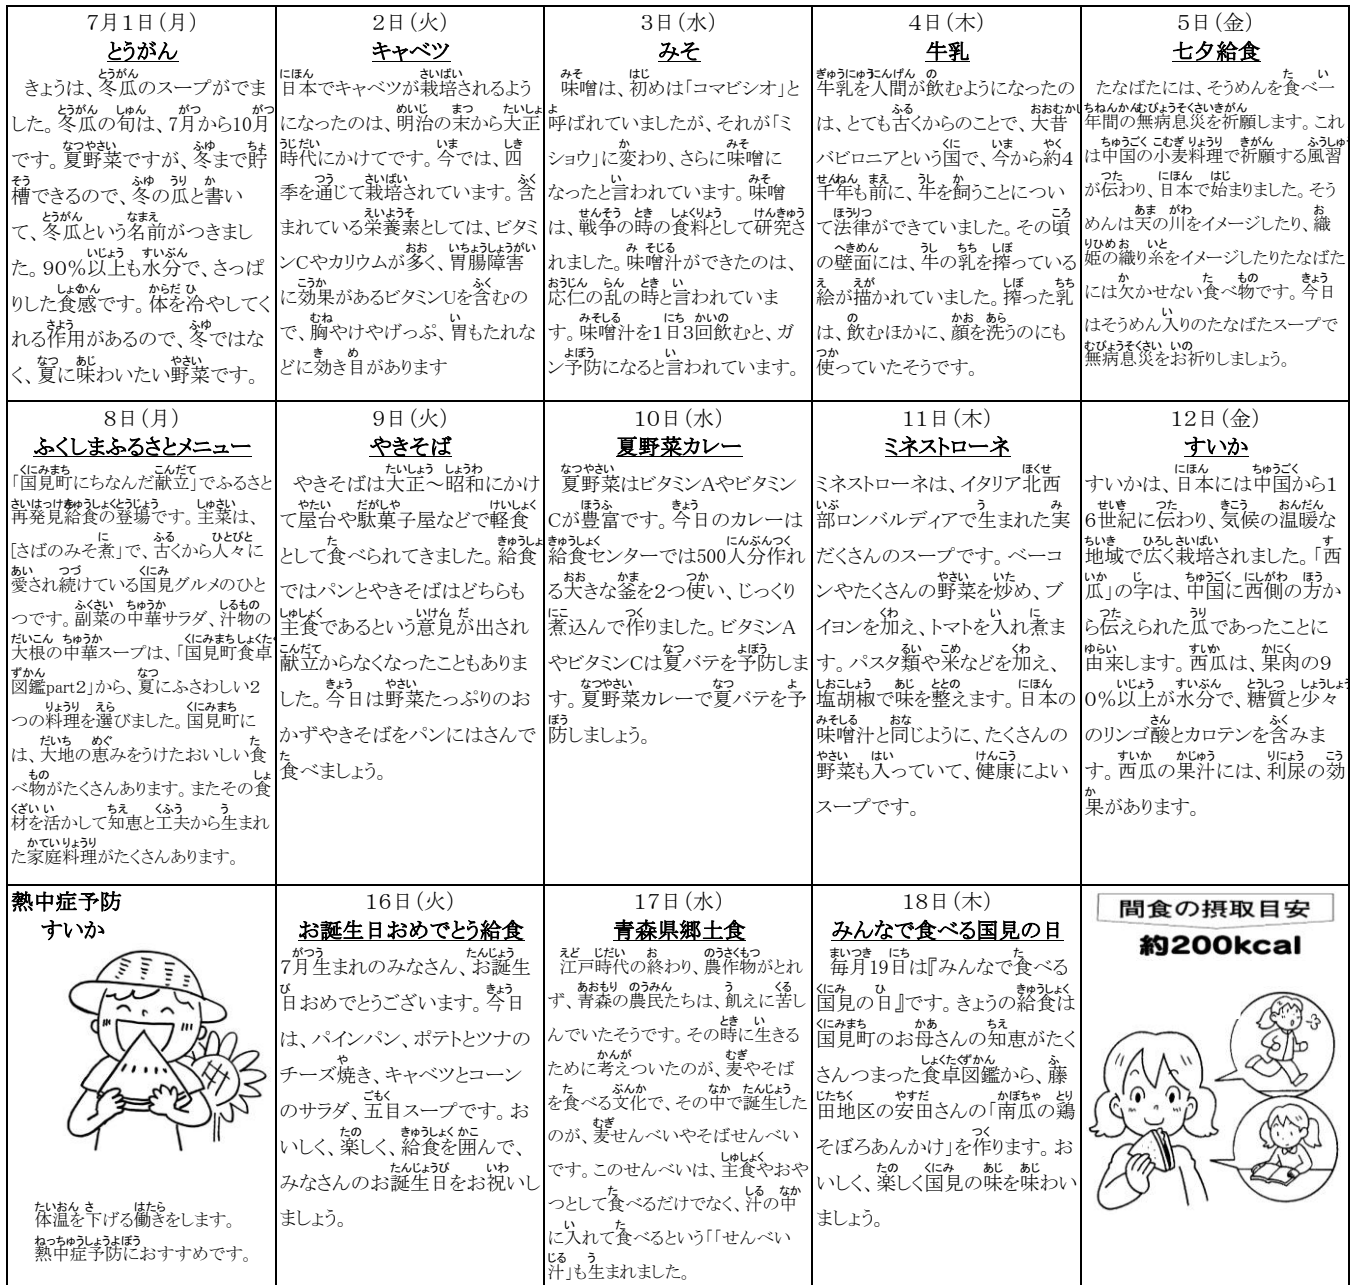 7月1日(月)
とうがん
きょうは、冬瓜のスープがでま
した。冬瓜の旬は、7月から10月
です。夏野菜ですが、冬まで貯
槽できるので、冬の瓜と書い
て、冬瓜という名前がつきまし
た。90%以上も水分で、さっぱ
りした食感です。体を冷やしてく
れる作用があるので、冬ではな
く、夏に味わいたい野菜です。
2日(火)
キャベツ
日本でキャベツが栽培されるよう
になったのは、明治の末から大正
時代にかけてです。今では、四
季を通じて栽培されています。含
まれている栄養素としては、ビタミ
ンCやカリウムが多く、胃腸障害
に効果があるビタミンUを含むの
で、胸やけやげっぷ、胃もたれな
どに効き目があります
3日(水)
みそ
味噌は、初めは「コマビシオ」と
呼ばれていましたが、それが「ミ
ショウ」に変わり、さらに味噌に
なったと言われています。味噌
は、戦争の時の食料として研究さ
れました。味噌汁ができたのは、
応仁の乱の時と言われていま
す。味噌汁を1日3回飲むと、ガ
ン予防になると言われています。
4日(木)
牛乳
牛乳を人間が飲むようになったの
は、とても古くからのことで、大昔
バビロニアという国で、今から約4
千年も前に、牛を飼うことについ
て法律ができていました。その頃
の壁面には、牛の乳を搾っている
絵が描かれていました。搾った乳
は、飲むほかに、顔を洗うのにも
使っていたそうです。
5日(金)
七夕給食
たなばたには、そうめんを食べ一
年間の無病息災を祈願します。これ
は中国の小麦料理で祈願する風習
が伝わり、日本で始まりました。そう
めんは天の川をイメージしたり、織
姫の織り糸をイメージしたりたなばた
には欠かせない食べ物です。今日
はそうめん入りのたなばたスープで
無病息災をお祈りしましょう。
8日(月)
ふくしまふるさとメニュー
「国見町にちなんだ献立」でふるさと
再発見給食の登場です。主菜は、
[さばのみそ煮」で、古くから人々に
愛され続けている国見グルメのひと
つです。副菜の中華サラダ、汁物の
大根の中華スープは、「国見町食卓
図鑑part2」から、夏にふさわしい2
つの料理を選びました。国見町に
は、大地の恵みをうけたおいしい食
べ物がたくさんあります。またその食
材を活かして知恵と工夫から生まれ
た家庭料理がたくさんあります。
9日(火)
やきそば
やきそばは大正～昭和にかけ
て屋台や駄菓子屋などで軽食
として食べられてきました。給食
ではパンとやきそばはどちらも
主食であるという意見が出され
献立からなくなったこともありま
した。今日は野菜たっぷりのお
かずやきそばをパンにはさんで
食べましょう。
10日(水)
夏野菜カレー
夏野菜はビタミンAやビタミン
Cが豊富です。今日のカレーは
給食センターでは500人分作れ
る大きな釜を2つ使い、じっくり
煮込んで作りました。ビタミンA
やビタミンCは夏バテを予防しま
す。夏野菜カレーで夏バテを予
防しましょう。
11日(木)
ミネストローネ
ミネストローネは、イタリア北西
部ロンバルディアで生まれた実
だくさんのスープです。ベーコ
ンやたくさんの野菜を炒め、ブ
イヨンを加え、トマトを入れ煮ま
す。パスタ類や米などを加え、
塩胡椒で味を整えます。日本の
味噌汁と同じように、たくさんの
野菜も入っていて、健康によい
スープです。
12日(金)
すいか
すいかは、日本には中国から1
6世紀に伝わり、気候の温暖な
地域で広く栽培されました。「西
瓜」の字は、中国に西側の方か
ら伝えられた瓜であったことに
由来します。西瓜は、果肉の9
0%以上が水分で、糖質と少々
のリンゴ酸とカロテンを含みま
す。西瓜の果汁には、利尿の効
果があります。
熱中症予防
すいか
体温を下げる働きをします。
熱中症予防におすすめです。
16日(火)
お誕生日おめでとう給食
7月生まれのみなさん、お誕生
日おめでとうございます。今日
は、パインパン、ポテトとツナの
チーズ焼き、キャベツとコーン
のサラダ、五目スープです。お
いしく、楽しく、給食を囲んで、
みなさんのお誕生日をお祝いし
ましょう。
17日(水)
青森県郷土食
江戸時代の終わり、農作物がとれ
ず、青森の農民たちは、飢えに苦し
んでいたそうです。その時に生きる
ために考えついたのが、麦やそば
を食べる文化で、その中で誕生した
のが、麦せんべいやそばせんべい
です。このせんべいは、主食やおや
つとして食べるだけでなく、汁の中
に入れて食べるという「「せんべい
汁」も生まれました。
18日(木)
みんなで食べる国見の日
毎月19日は『みんなで食べる
国見の日』です。きょうの給食は
国見町のお母さんの知恵がたく
さんつまった食卓図鑑から、藤
田地区の安田さんの「南瓜の鶏
そぼろあんかけ」を作ります。お
いしく、楽しく国見の味を味わい
ましょう。
間食の摂取目安
約200kcal